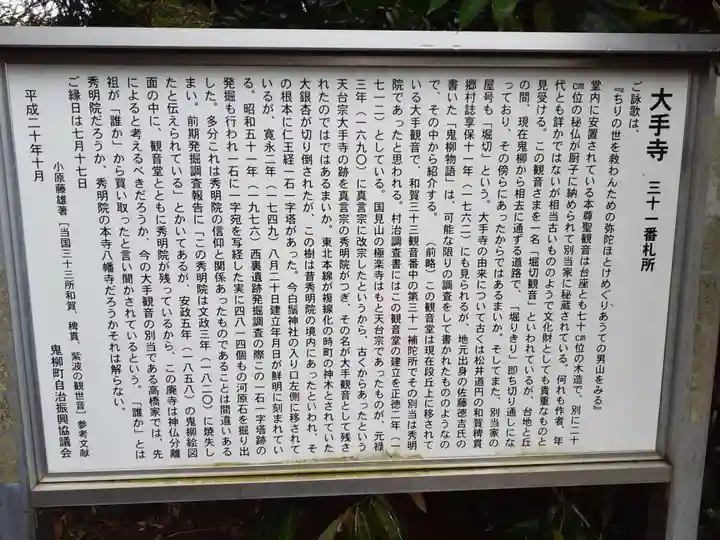 大手寺　三十一番札所
ご詠歌は、
『ちりの世を救わんための弥陀ほとけめぐくりあうての男山をみる』
堂内に安置されている本尊聖観音は台座とも七十㎝位の木造で、別に二十
㎝位の秘仏が厨子に納められて別当家に秘蔵されている。何れも作者、年
代とも詳かではないが相当古いもののようで文化財としても貴重なものと
見受ける。この観音さまを一名「堀切観音」といわれているが、台地と丘
の間、現在鬼柳から相去に通ずる道路で、「堀りきり」即ち切り通しにな
っており、その傍らにあったからではあるまいか。そしてまた、別当家の
屋号も「堀切」という、大手寺の由来について古くは松井道円の和賀稗貫
郷村誌享保十一年（一七六二）にも見られるが、地元出身の佐藤徳吉氏の
書いた「鬼柳物語」は、可能な限りの調査をして書かれたもののようなの
で、その中から紹介する。　（前略）この観音堂は現在段丘上に移されて
いる大手観音で、和賀三十三観音番中の第三十一補陀所でその別当は秀明
院であったと思われる。村治調査書にはこの観音堂の建立を正徳二年（一
七一二）としている。国見山の極楽寺はもと天台宗であったものが、元禄
三年（一六九〇）に真言宗に改宗したというから、古くからあったという
天台宗大手寺の跡を真言宗の秀明院がつぎ、その名が大手観音として残さ
れたのではではあるまいか。東北本線が複線化の時町の神木とされていた
大銀杏が切り倒されたが、この樹は昔秀明院の境内にあったといわれ、そ
の根本に仁王経一石一字塔があった。今白鬚神社の入り口左側に移されて
いるが、寛永二年（一七四九）八月二十日建立年月日が鮮明に刻まれてい
る。昭和五十一年（一九七六）西裏遺跡発掘調査の際この一石一字塔跡の
発掘も行われ一石に一字宛を写経した実に四八一四個もの河原石を掘り出
した。多分これは秀明院の信仰と関係あったものであることは間違いある
まい。前期発掘調査報告に「この秀明院は文政三年（一八二〇）に焼失し
たと伝えられている」とかいてあるが、安政五年（一八五八）の鬼柳絵図
面の中に、観音堂とともに秀明院が残っているから、この廃寺は神仏分離
によると考えるべきだろうか、今の大手観音の別当である高橋家では、先
祖が「誰か」から買い取ったと言い聞かされているという。「誰か」とは
秀明院だろうか、秀明院の本寺八幡寺だろうかそれは解らない。
ご縁日は七月十七日
小原藤雄著〔当国三十三所和賀、稗貫、紫波の観世音〕参考文献
平成二十年十月
鬼柳町自治振興協議会